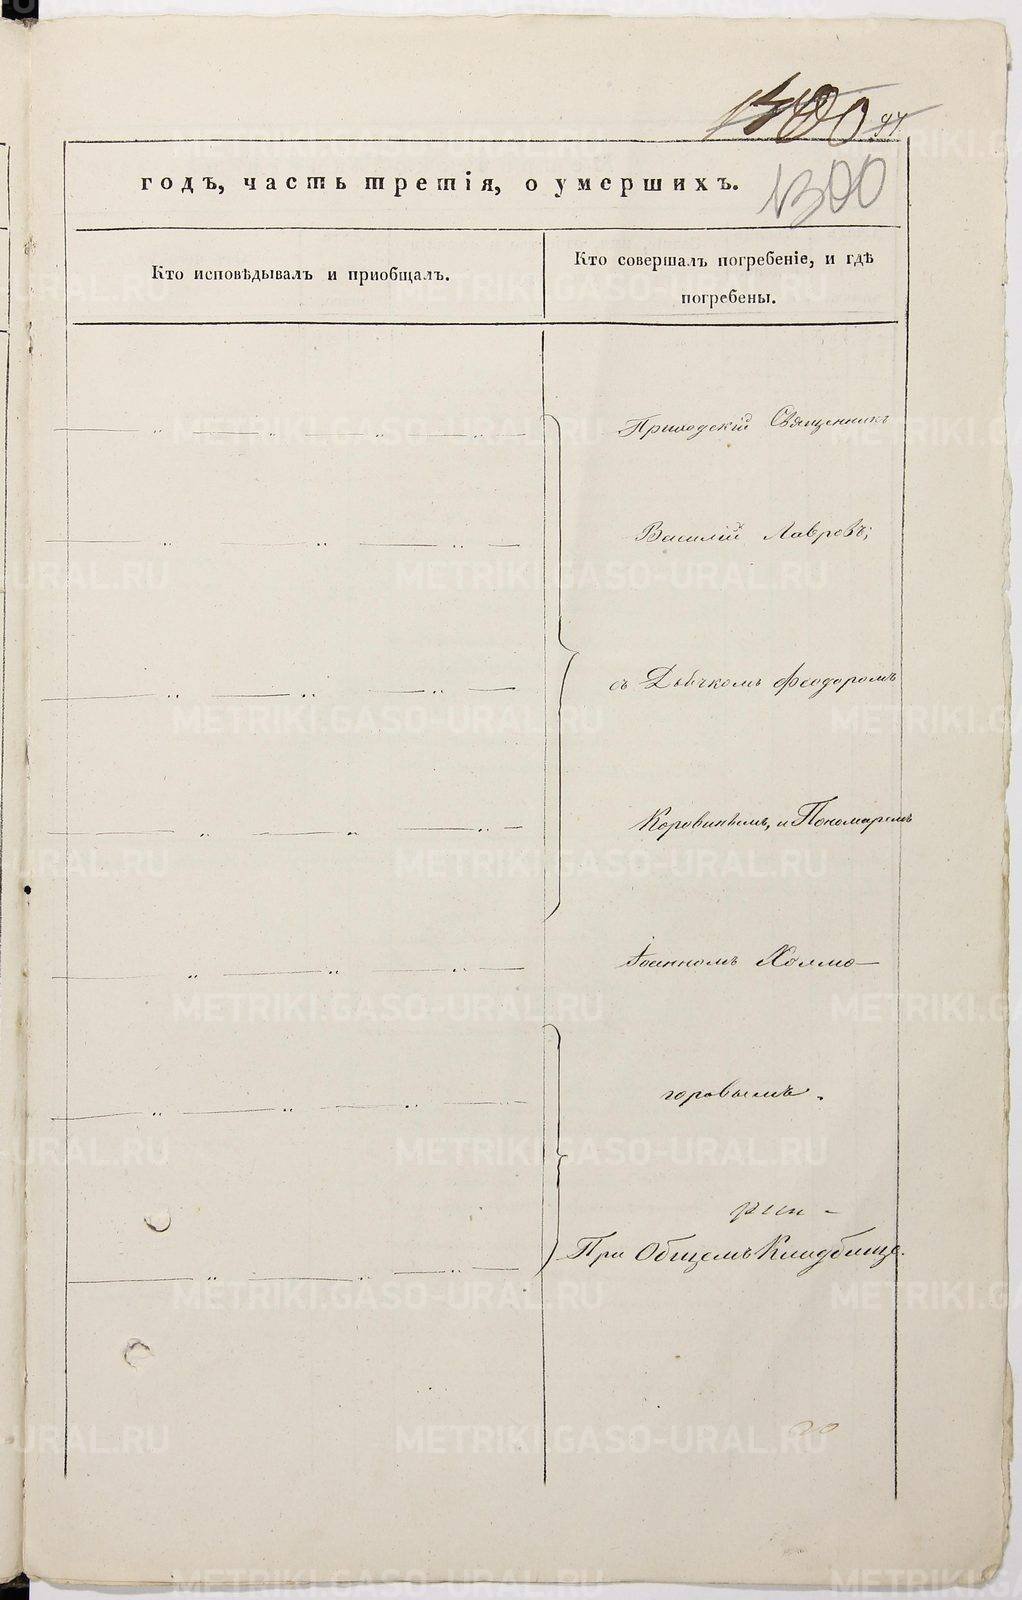 97
1300
годъ, часть третія, о умершихъ.
Кто исповѣдывалъ и пріобщалъ.
Кто совершалъ погребеніе, и гдѣ
погребены.
Приходскій Священникъ
Василій Лавровъ;
съ Дьячкомъ Феодоромъ
Коровинымъ, и Пономаремъ
Іоанномъ Холмо-
горовымъ.
При Общемъ Кладбище.
METRIKI.GASO-URAL.RU